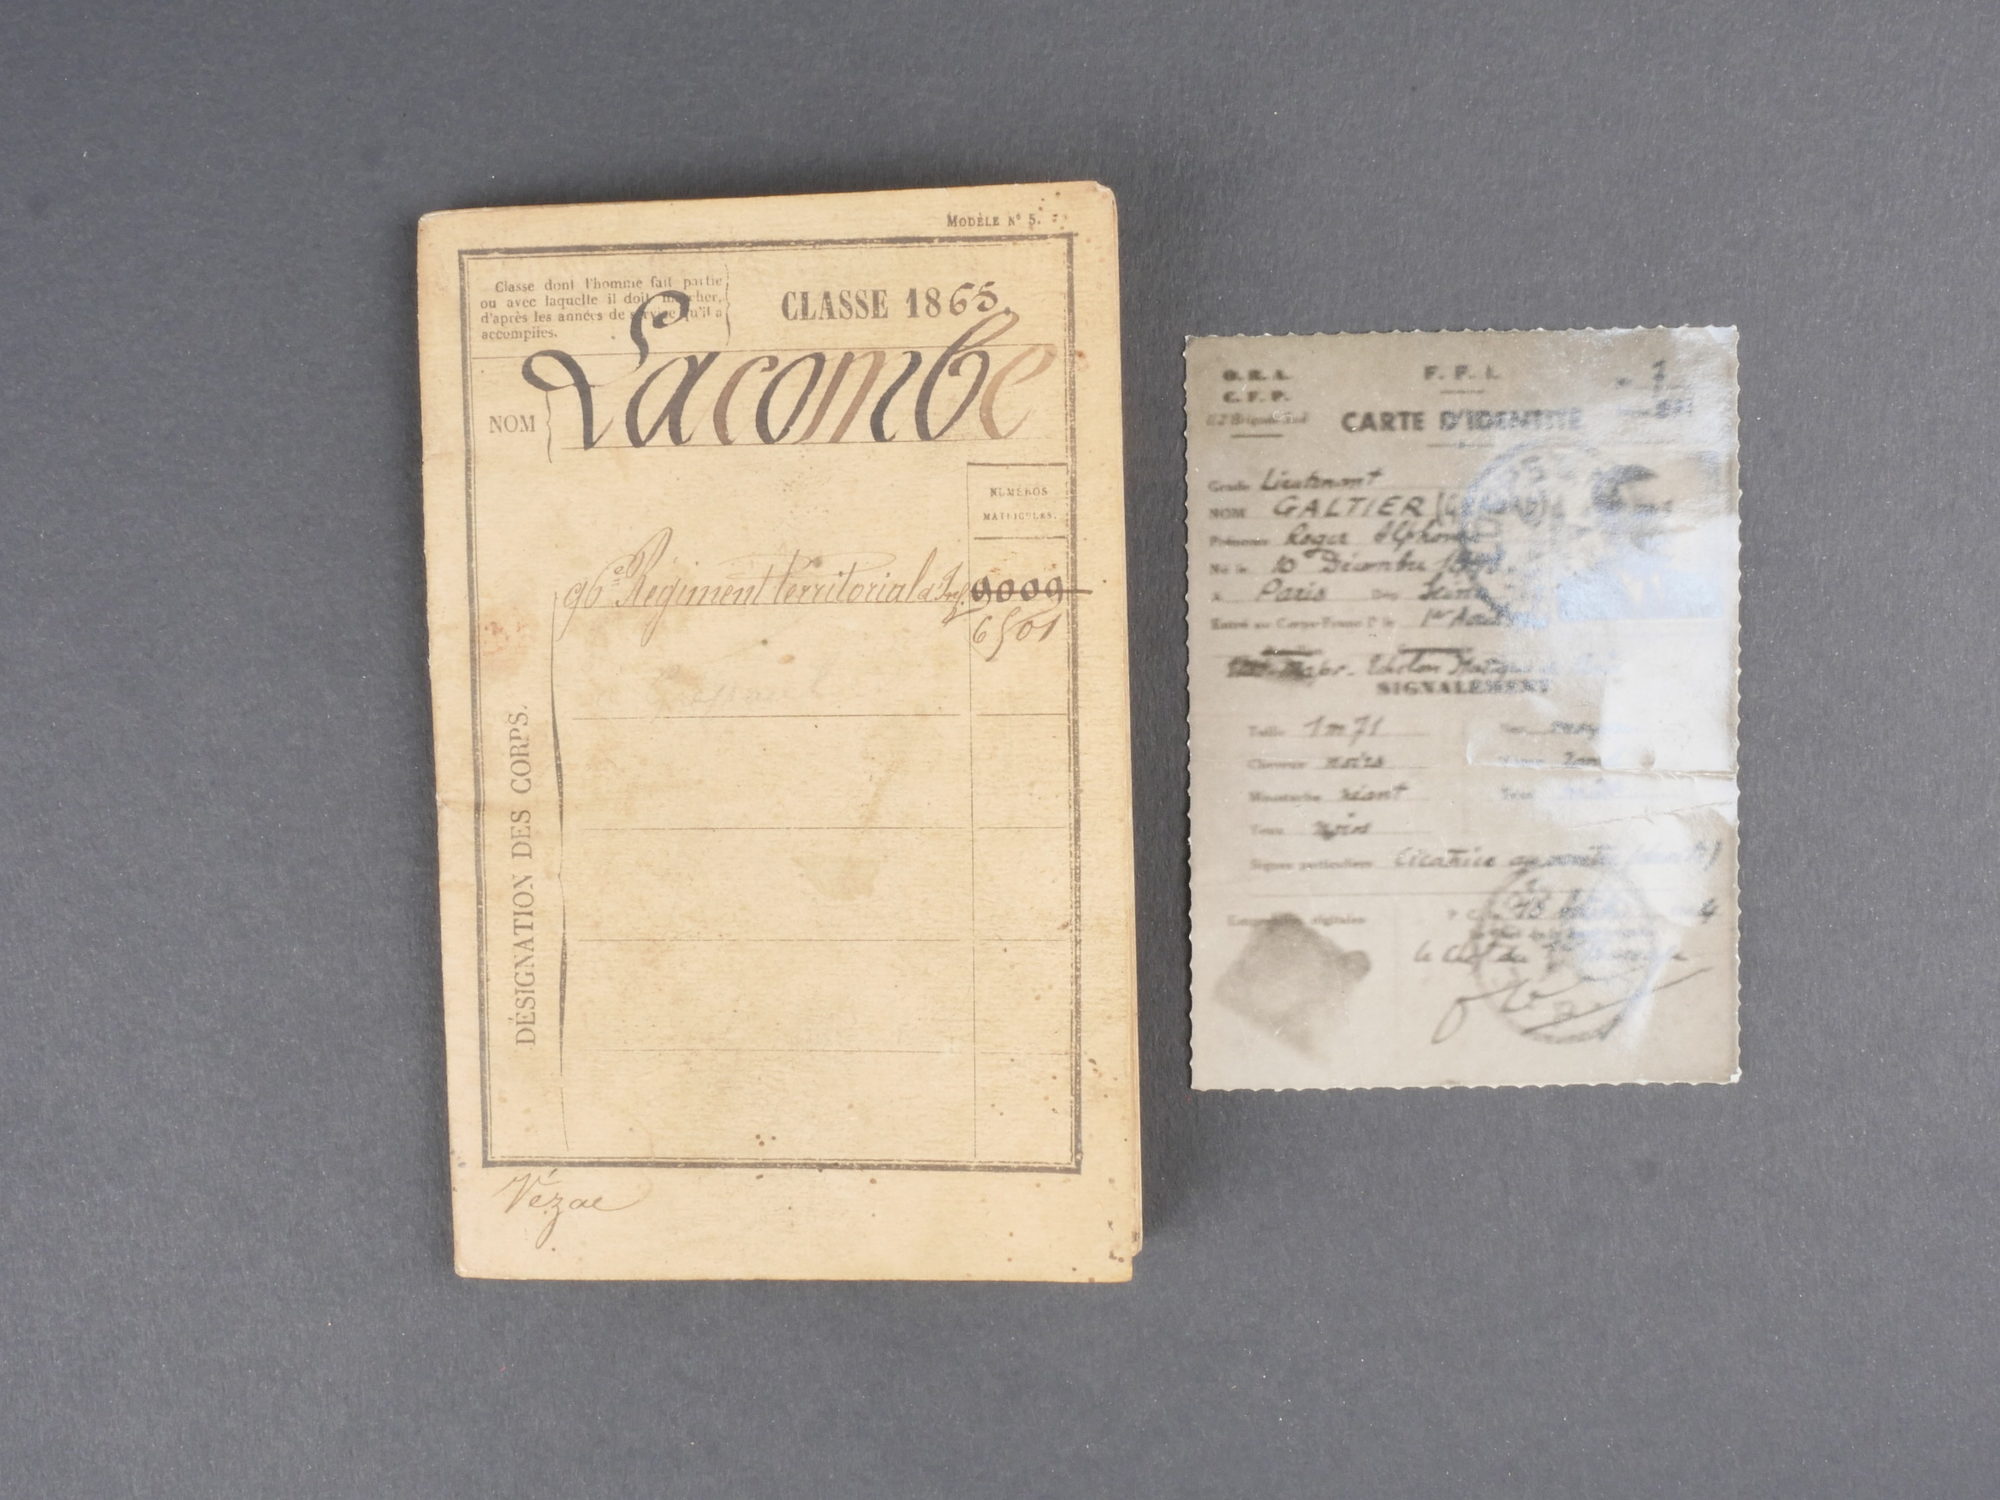 MODÈLE N° 5.
Classe dont l'homme fait partie
ou avec laquelle il doit marcher,
d'après les années de service qu'il a
accomplies.
CLASSE 1865.
NOM
Lacombe
NUMÉROS
MATRICULES.
96e Régiment territorial d'Inf. 9009
6501
DÉSIGNATION DES CORPS.
Vézac
O. R. A.
C. F. P.
F. F. I.
CARTE D'IDENTITÉ
Grade Lieutenant
NOM GALTIER
Prénoms Roger Alphonse
Né le 10 Décembre
à Paris Dep. Seine
Entré au Corps-Franc P le 1er Août
SIGNALEMENT
Taille 1m71
Cheveux noirs
Moustache néant
Yeux noirs
Signes particuliers Cicatrice
Empreintes digitales